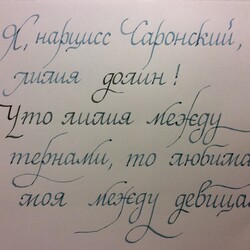 Я, нарцисс Чаронский,
лилия долин!
Что лилия между
тернами, то любима
моя между девицам